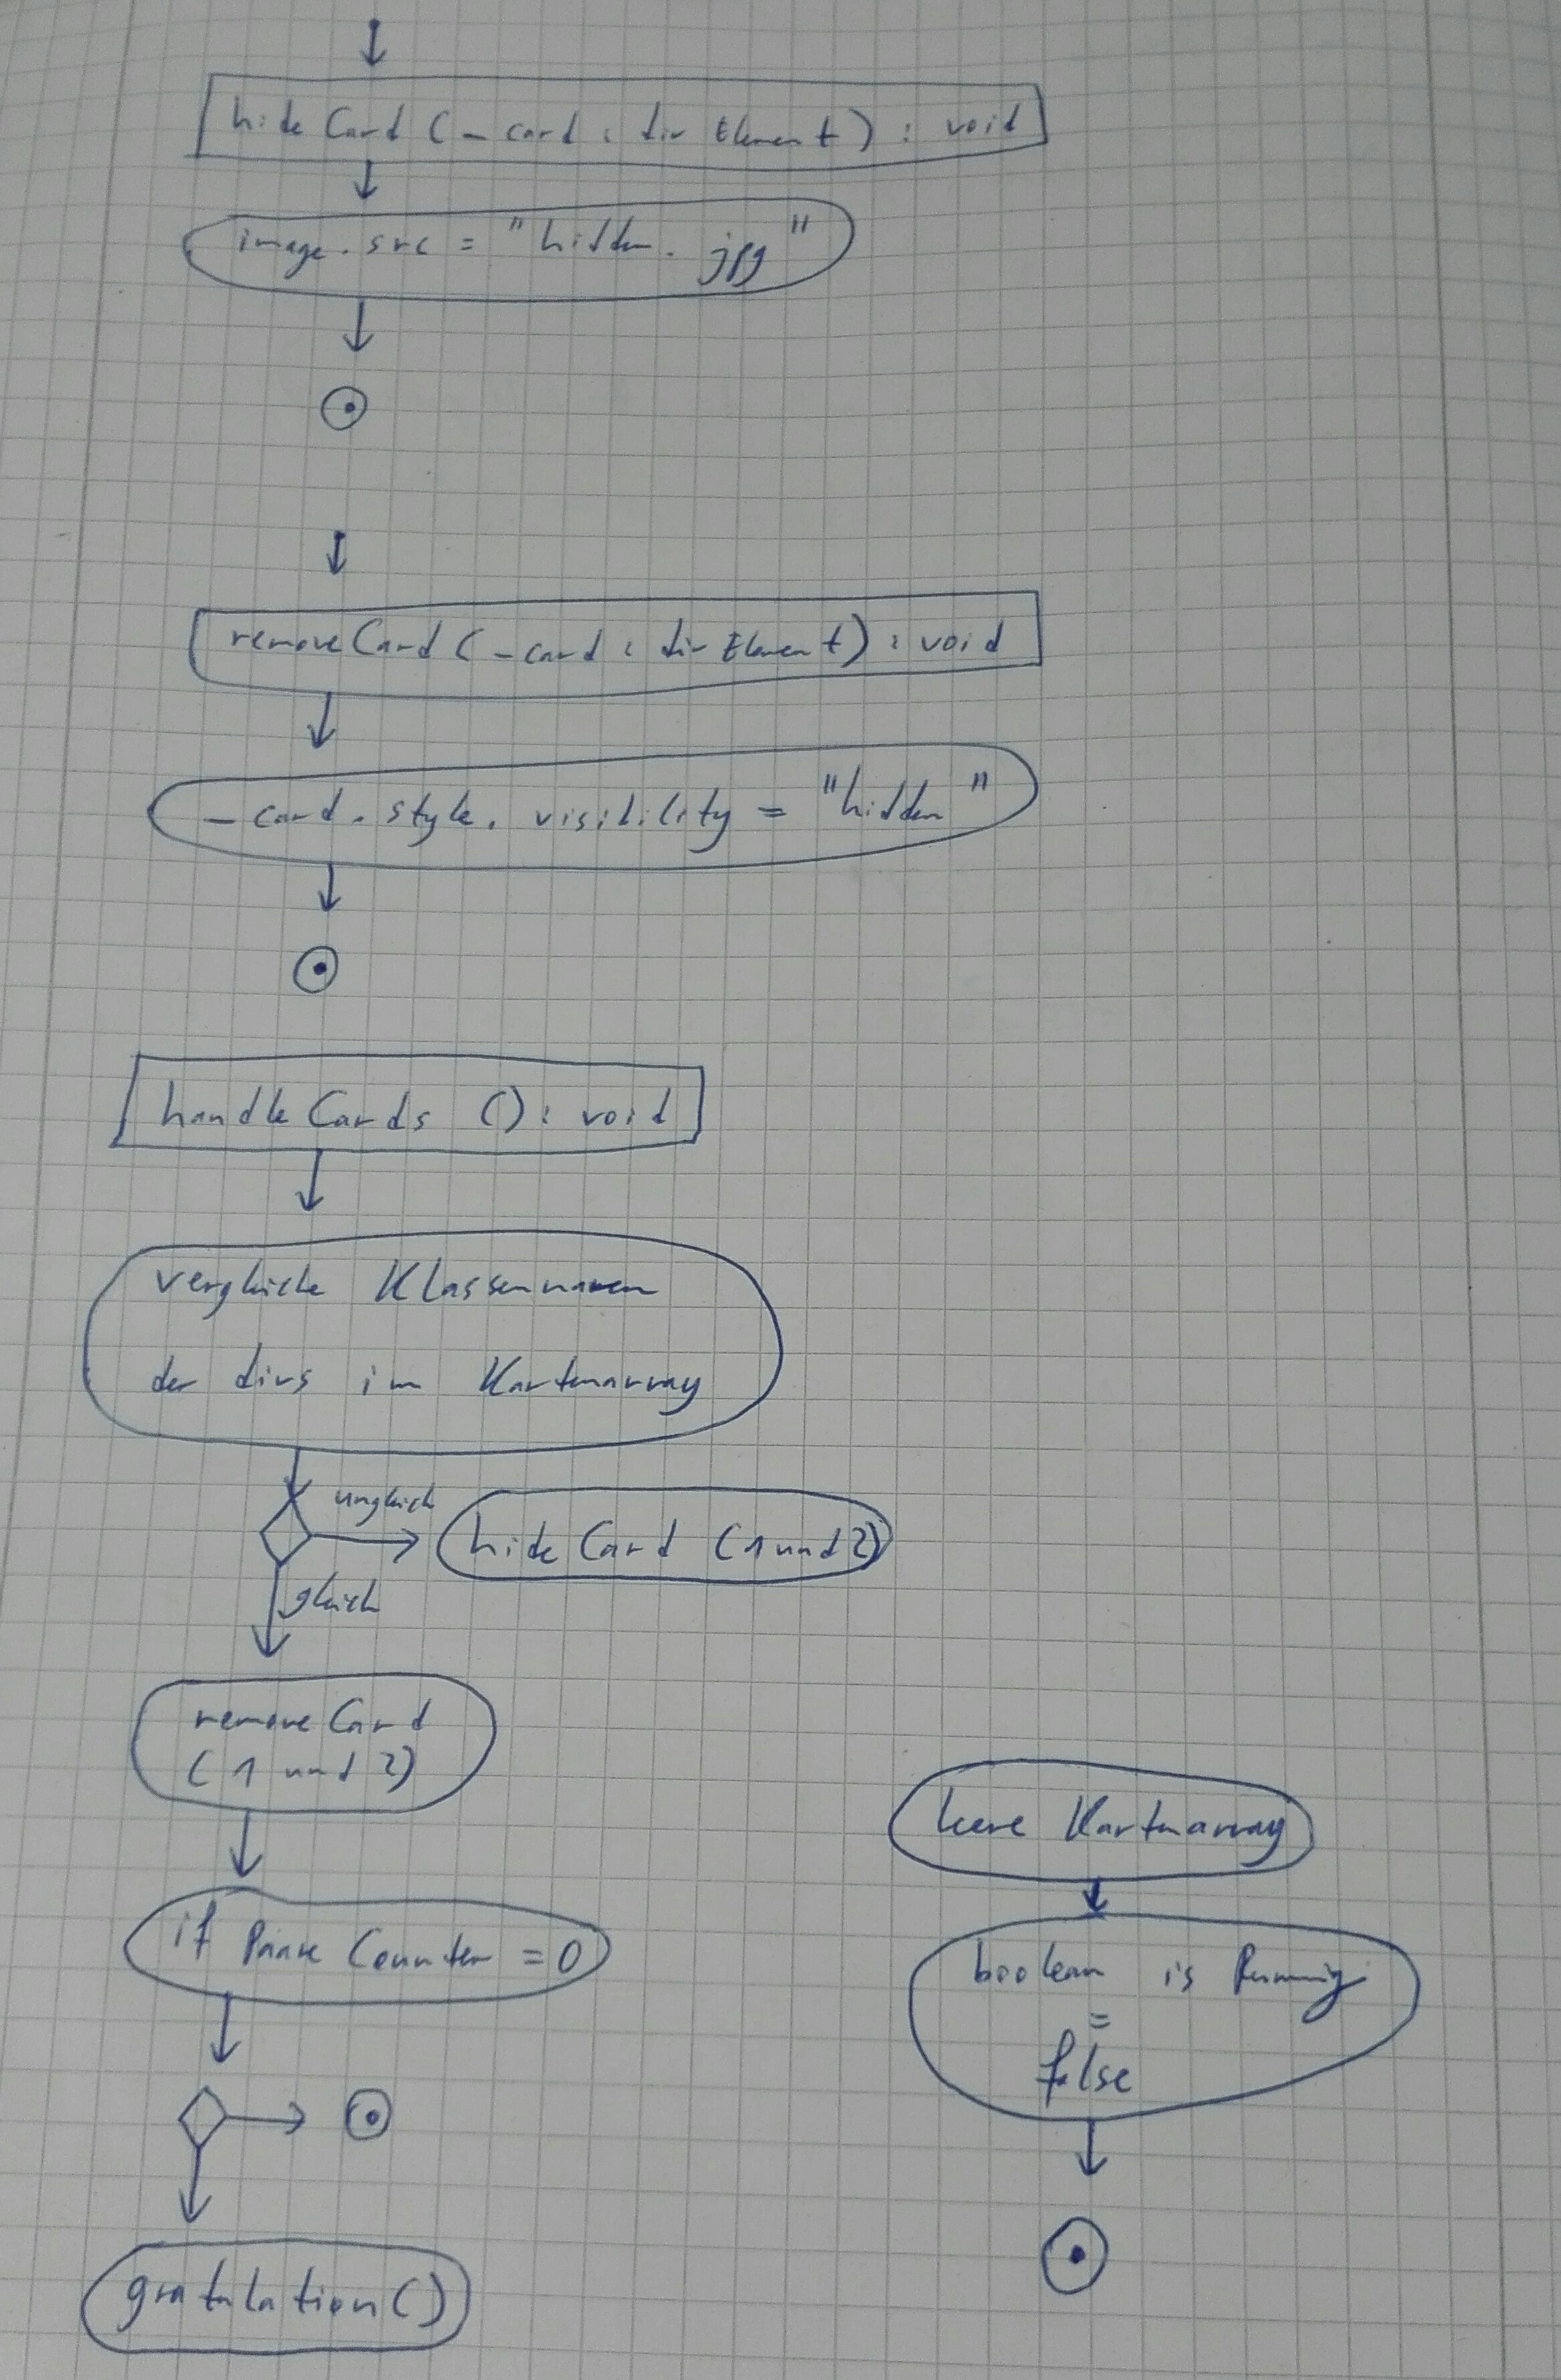 hideCard (_card : divElement) : void
image.src = "hidden.jpg"
removeCard (_card : divElement) : void
_card.style.visibility = "hidden"
handleCards () : void
vergleiche Klassennamen
der divs im Kartenarray
ungleich
hideCard (1 und 2)
gleich
removeCard
(1 und 2)
if Paare Counter = 0
gratulation()
leere Kartenarray
boolean isRunning
=
false